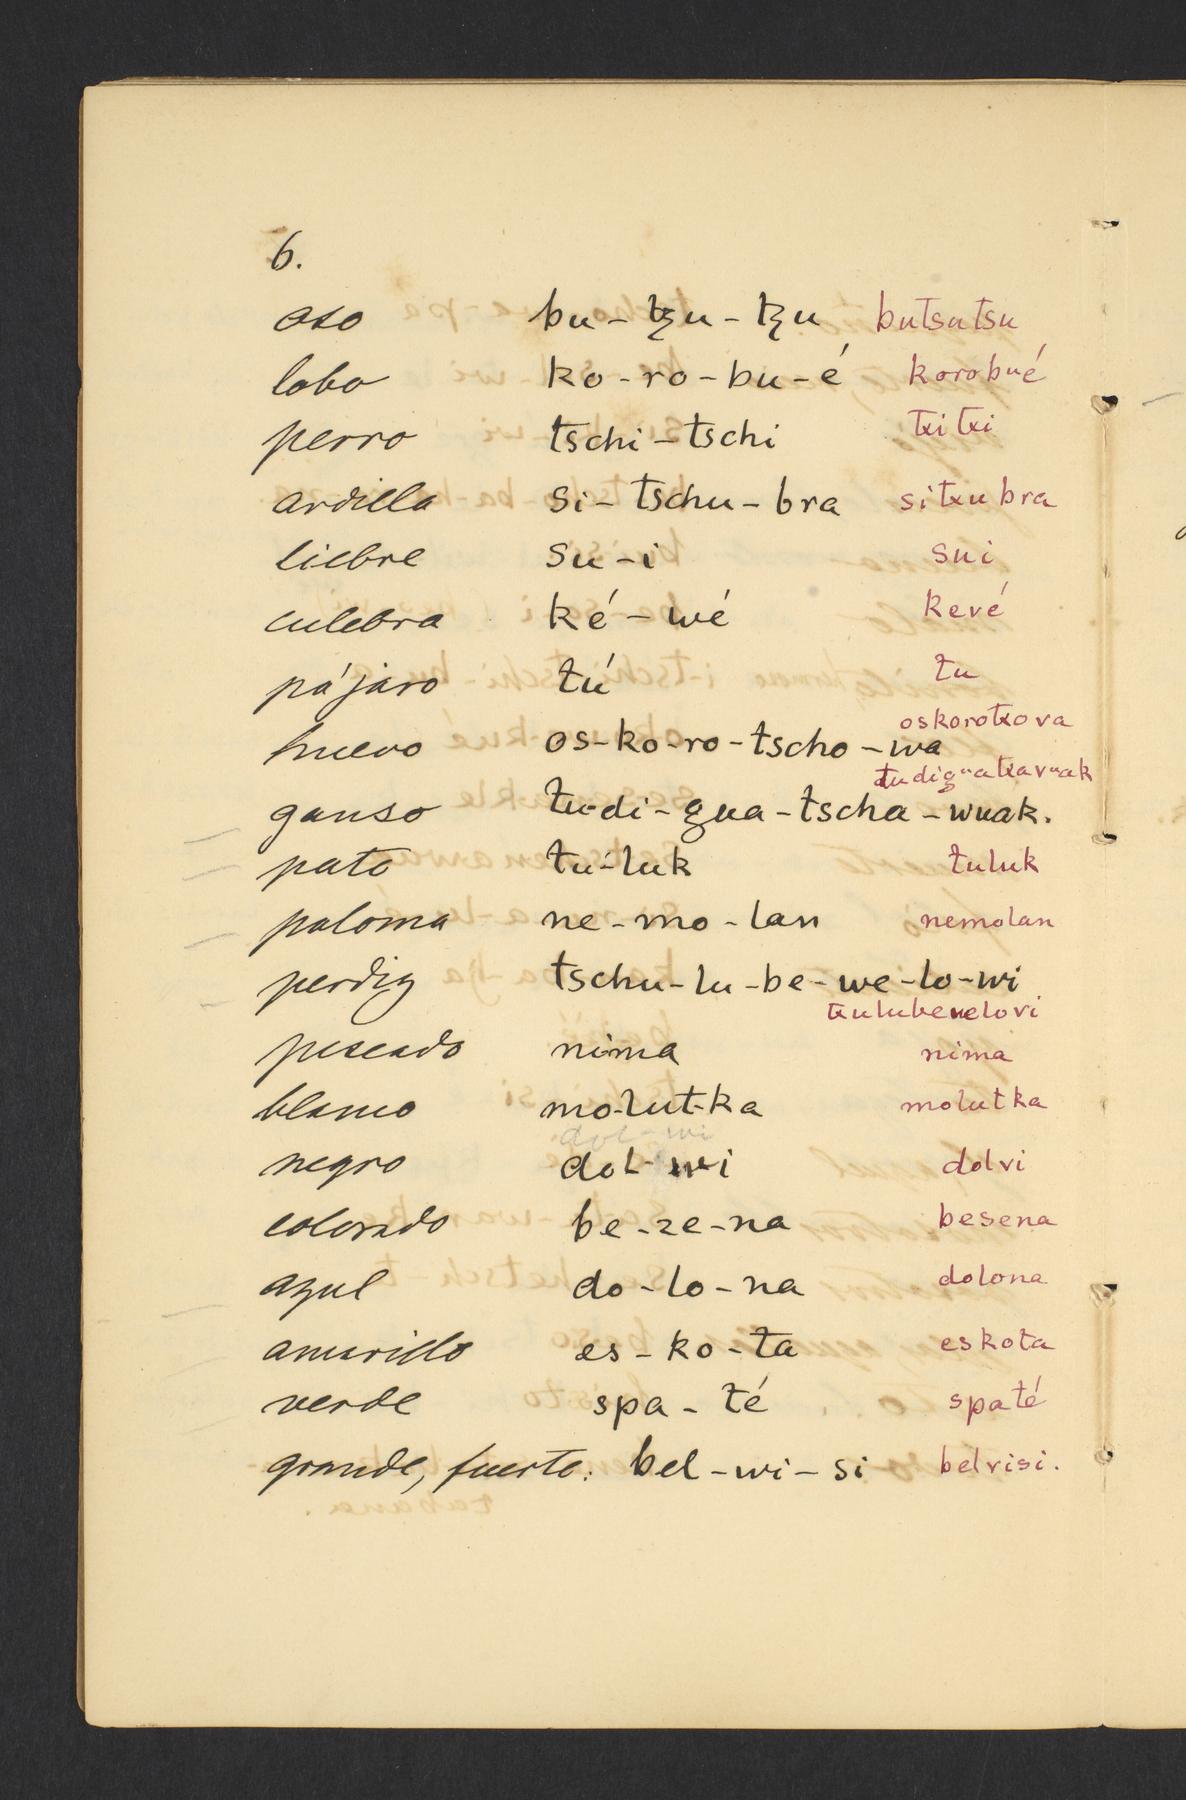 6.
oso bu-tzu-tzu butsutsu
lobo ko-ro-bu-é korobué
perro tschi-tschi txitxi
ardilla si-tschu-bra sitxubra
liebre su-i sui
culebra ké-wé kevé
pájaro tú tu
oskorotxova
huevo os-ko-ro-tscho-wa
tudiguatxavuak
ganso tu-di-gua-tscha-wuak.
pato tu-luk tuluk
paloma ne-mo-lan nemolan
perdiz tschu-lu-be-we-lo-wi
txulubevelovi
pescado nima nima
blanco mo-lut-ka molutka
dol-wi
negro dol-wi dolvi
colorado be-ze-na besena
azul do-lo-na dolona
amarillo es-ko-ta eskota
verde spa-té spaté
grande, fuerte. bel-wi-si belvisi.